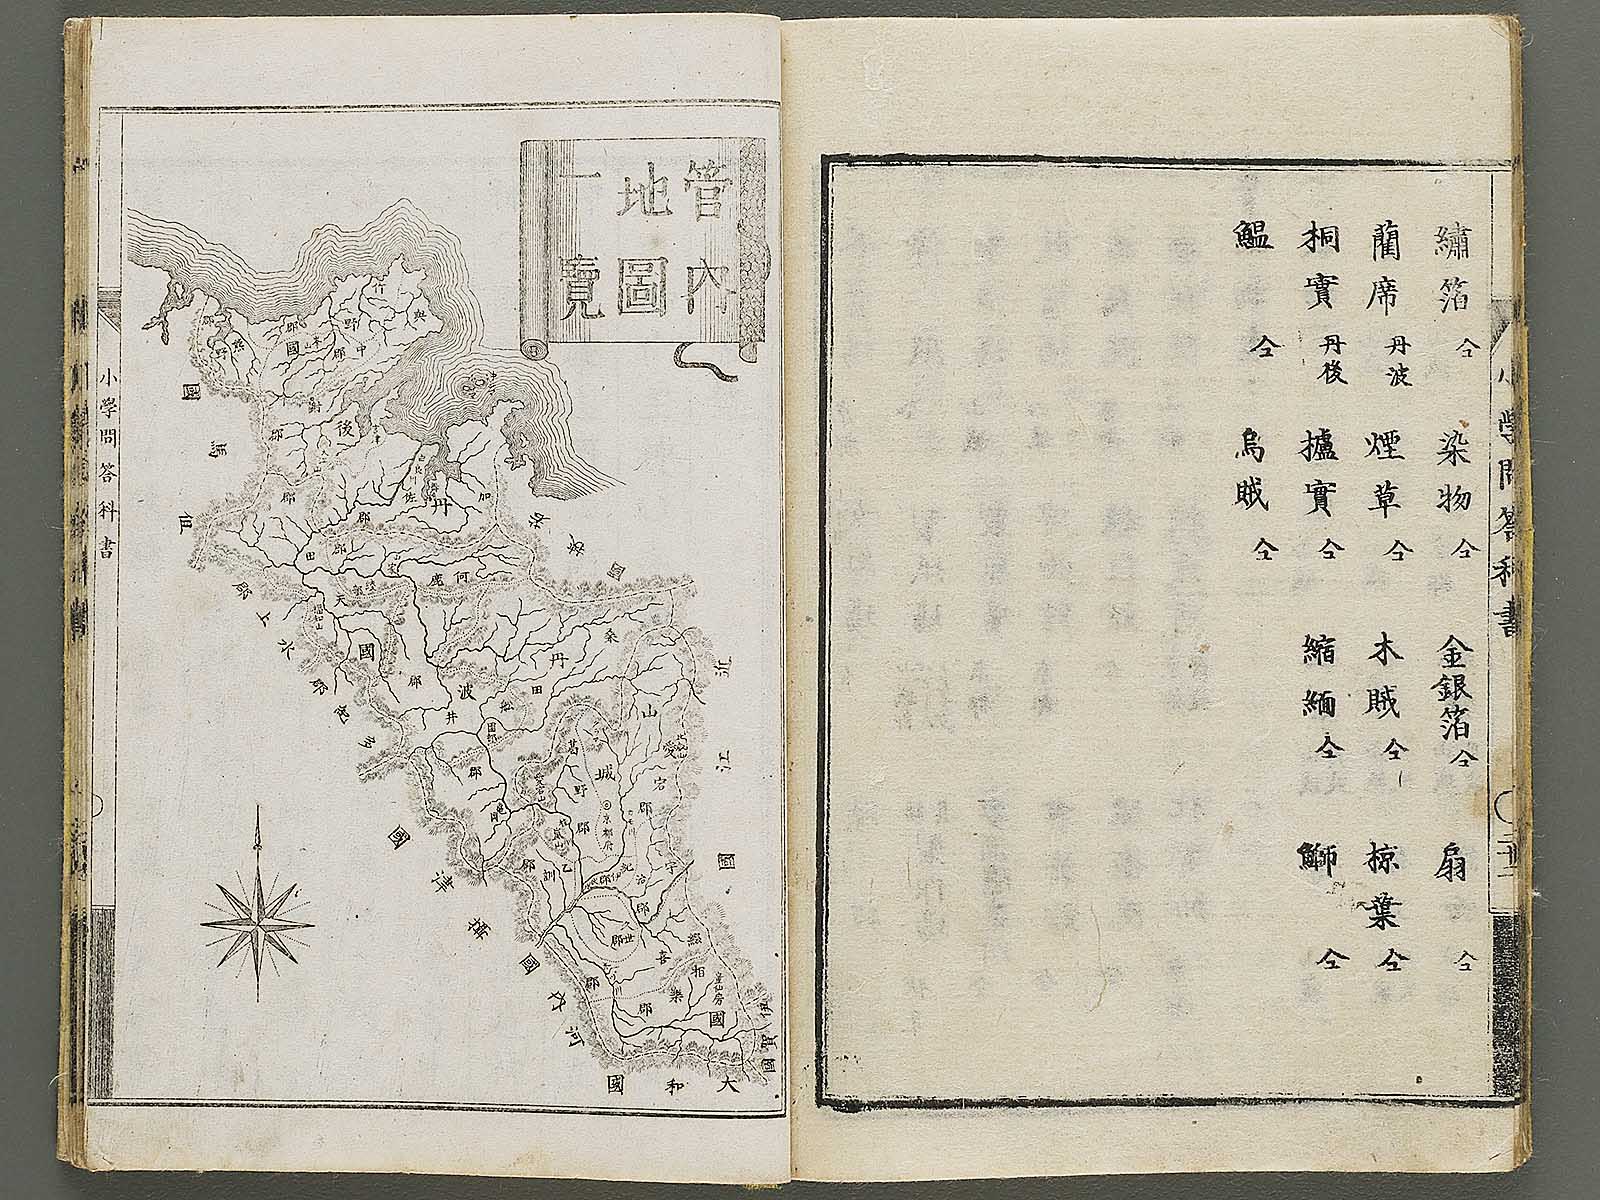 繡箔 仝 染物 仝 金銀箔 仝 扇 仝
藺席 丹波 煙草 仝 木賊 仝 椋葉 仝
桐實 丹後 櫨實 仝 縮緬 仝 鰤 仝
鰮 仝 烏賊 仝
小學問答科書
管內
地圖
一覽
小学問答科書
與
竹野郡
中郡
熊野郡
丹後國
加佐郡
宮津
由良川
若狹國
但馬國
何鹿郡
天田郡
丹波國
桑田
船井郡
園部
氷上郡
多紀郡
近江國
山城國
愛宕郡
葛野郡
京都府
乙訓郡
紀
宇治郡
相樂郡
攝津國
河內國
大和國